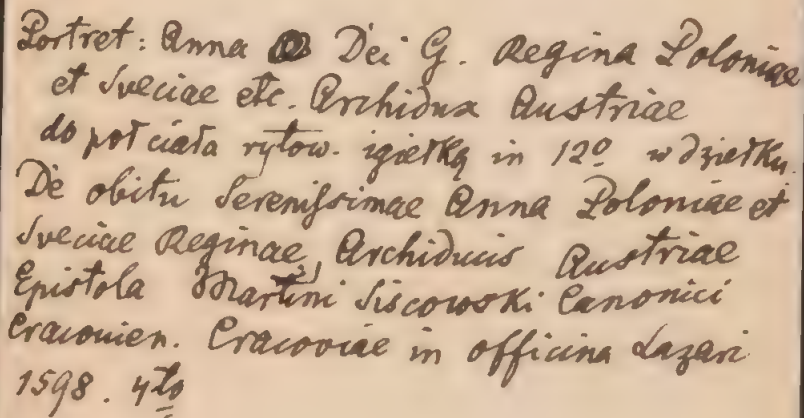 Portret: Anna Dei G. Regina Poloniae
et Sveciae etc. Archidux Austriae
do pół ciała rytow. igiełką in 12º w dziełku.
De obitu Serenissimae Anna Poloniae et
Sveciae Reginae, Archiducis Austriae
Epistola Martini Siscowski Canonici
Cracovien. Cracoviae in officina Lazari
1598. 4to